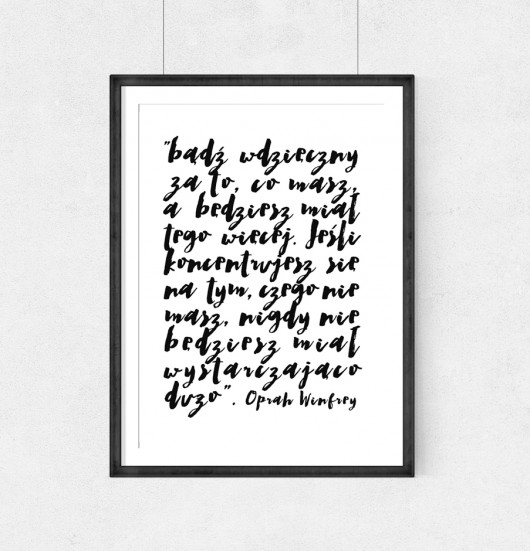 "bądź wdzięczny
za to, co masz,
a będziesz miał
tego więcej. Jeśli
koncentrujesz się
na tym, czego nie
masz, nigdy nie
będziesz miał
wystarczająco
dużo". Oprah Winfrey